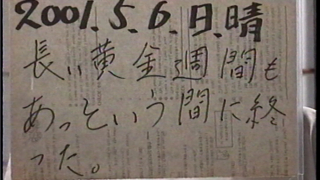 2001.5.6.日.晴
長い黄金週間も
あっという間に終
った。